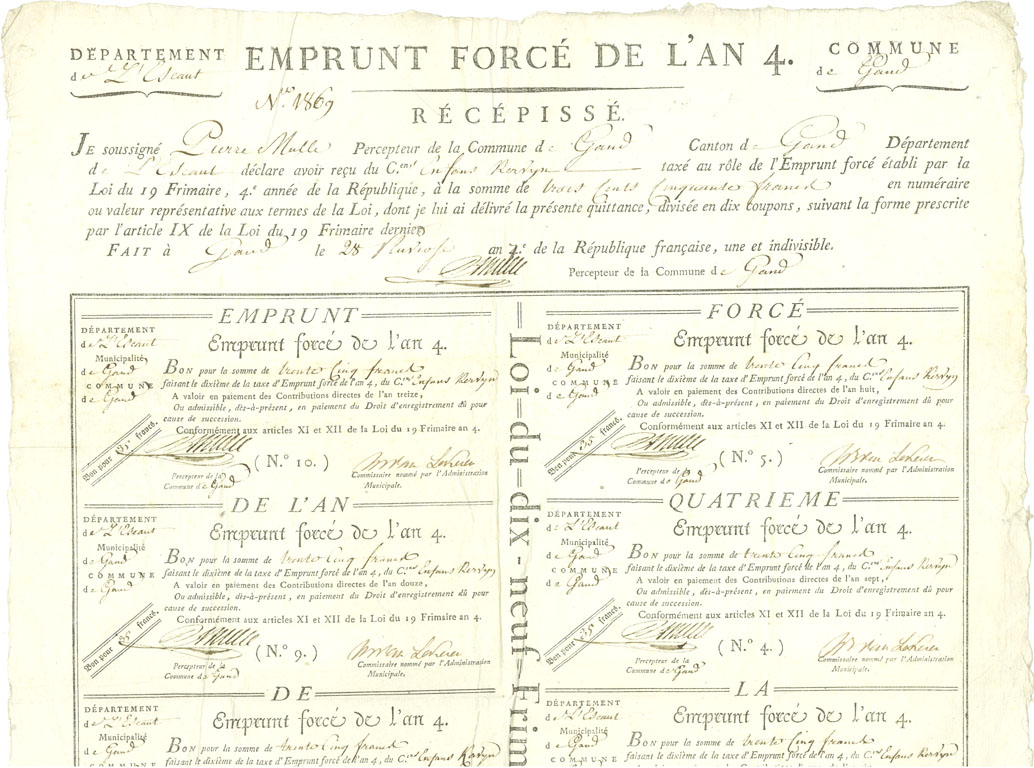 DÉPARTEMENT
de L'Escaut
EMPRUNT FORCÉ DE L'AN 4.
COMMUNE
de Gand
N.º 1869
RÉCÉPISSÉ.
JE soussigné Pierre Mulle Percepteur de la Commune de Gand Canton de Gand Département
de L'Escaut déclare avoir reçu du C.en Enfans Kervyn taxé au rôle de l'Emprunt forcé établi par la
Loi du 19 Frimaire, 4.e année de la République, à la somme de trois Cents Cinquante francs en numéraire
ou valeur représentative aux termes de la Loi, dont je lui ai délivré la présente quittance, divisée en dix coupons, suivant la forme prescrite
par l'article IX de la Loi du 19 Frimaire dernier
FAIT à Gand le 28 Pluviose an 4.e de la République française, une et indivisible.
PMulle Percepteur de la Commune de Gand
EMPRUNT
DÉPARTEMENT
de L'Escaut
Municipalité
de Gand
COMMUNE
de Gand
Emprunt forcé de l'an 4.
BON pour la somme de trente Cinq francs
faisant le dixième de la taxe d'Emprunt forcé de l'an 4, du C.en Enfans Kervyn
A valoir en paiement des Contributions directes de l'an treize,
Ou admissible, dès-à-présent, en paiement du Droit d'enregistrement dû pour
cause de succession.
Conformément aux articles XI et XII de la Loi du 19 Frimaire an 4.
Bon pour 35 francs.
PMulle
Percepteur de la
Commune de Gand
(N.º 10.)
Commissaire nommé par l'Administration
Municipale.
DE L'AN
DÉPARTEMENT
de L'Escaut
Municipalité
de Gand
COMMUNE
de Gand
Emprunt forcé de l'an 4.
BON pour la somme de trente Cinq francs
faisant le dixième de la taxe d'Emprunt forcé de l'an 4, du C.en Enfans Kervyn
A valoir en paiement des Contributions directes de l'an douze,
Ou admissible, dès-à-présent, en paiement du Droit d'enregistrement dû pour
cause de succession.
Conformément aux articles XI et XII de la Loi du 19 Frimaire an 4.
Bon pour 35 francs.
PMulle
Percepteur de la
Commune de Gand
(N.º 9.)
Commissaire nommé par l'Administration
Municipale.
DE
DÉPARTEMENT
de L'Escaut
Municipalité
de Gand
COMMUNE
Emprunt forcé de l'an 4.
BON pour la somme de trente Cinq francs
faisant le dixième de la taxe d'Emprunt forcé de l'an 4, du C.en Enfans Kervyn
Loi-du-dix-neuf-Frim
FORCÉ
DÉPARTEMENT
de L'Escaut
Municipalité
de Gand
COMMUNE
de Gand
Emprunt forcé de l'an 4.
BON pour la somme de trente Cinq francs
faisant le dixième de la taxe d'Emprunt forcé de l'an 4, du C.en Enfans Kervyn
A valoir en paiement des Contributions directes de l'an huit,
Ou admissible, dès-à-présent, en paiement du Droit d'enregistrement dû pour
cause de succession.
Conformément aux articles XI et XII de la Loi du 19 Frimaire an 4.
Bon pour 35 francs.
PMulle
Percepteur de la
Commune de Gand
(N.º 5.)
Commissaire nommé par l'Administration
Municipale.
QUATRIEME
DÉPARTEMENT
de L'Escaut
Municipalité
de Gand
COMMUNE
de Gand
Emprunt forcé de l'an 4.
BON pour la somme de trente Cinq francs
faisant le dixième de la taxe d'Emprunt forcé de l'an 4, du C.en Enfans Kervyn
A valoir en paiement des Contributions directes de l'an sept,
Ou admissible, dès-à-présent, en paiement du Droit d'enregistrement dû pour
cause de succession.
Conformément aux articles XI et XII de la Loi du 19 Frimaire an 4.
Bon pour 35 francs.
PMulle
Percepteur de la
Commune de Gand
(N.º 4.)
Commissaire nommé par l'Administration
Municipale.
LA
DÉPARTEMENT
de L'Escaut
Municipalité
de Gand
COMMUNE
Emprunt forcé de l'an 4.
BON pour la somme de trente Cinq francs
faisant le dixième de la taxe d'Emprunt forcé de l'an 4, du C.en Enfans Kervyn